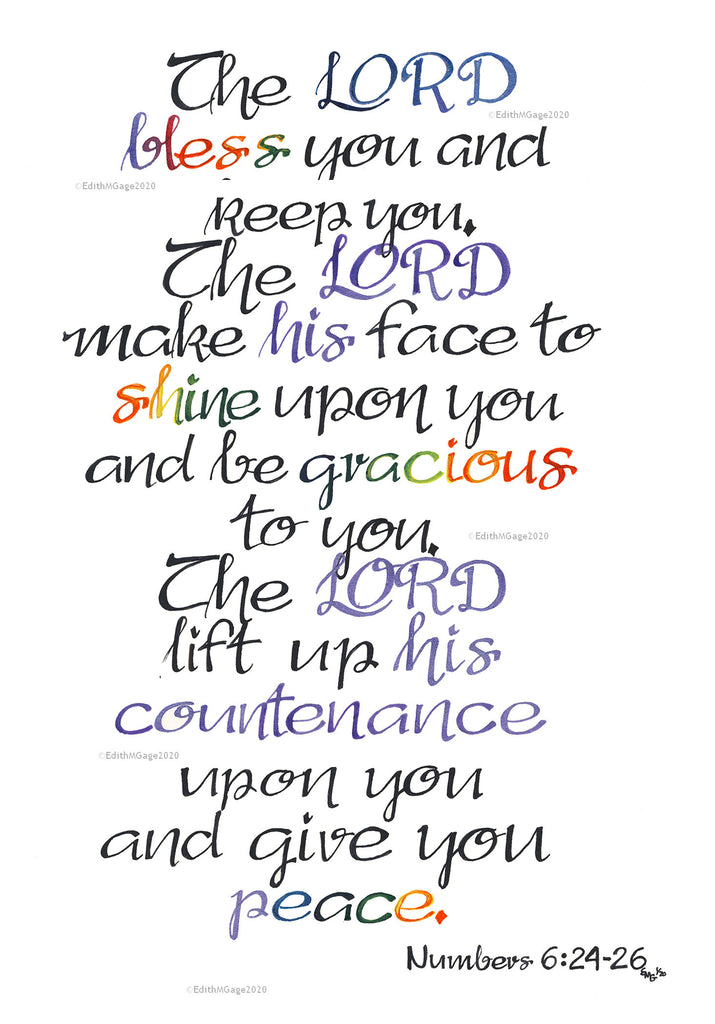 The LORD
©EdithMGage2020
bless you and
©EdithMGage2020
keep you.
The LORD
make his face to
shine upon you
and be gracious
to you.
©EdithMGage2020
The LORD
lift up his
countenance
©EdithMGage2020
upon you
and give you
peace.
Numbers 6:24-26
EMG 1/20
©EdithMGage2020